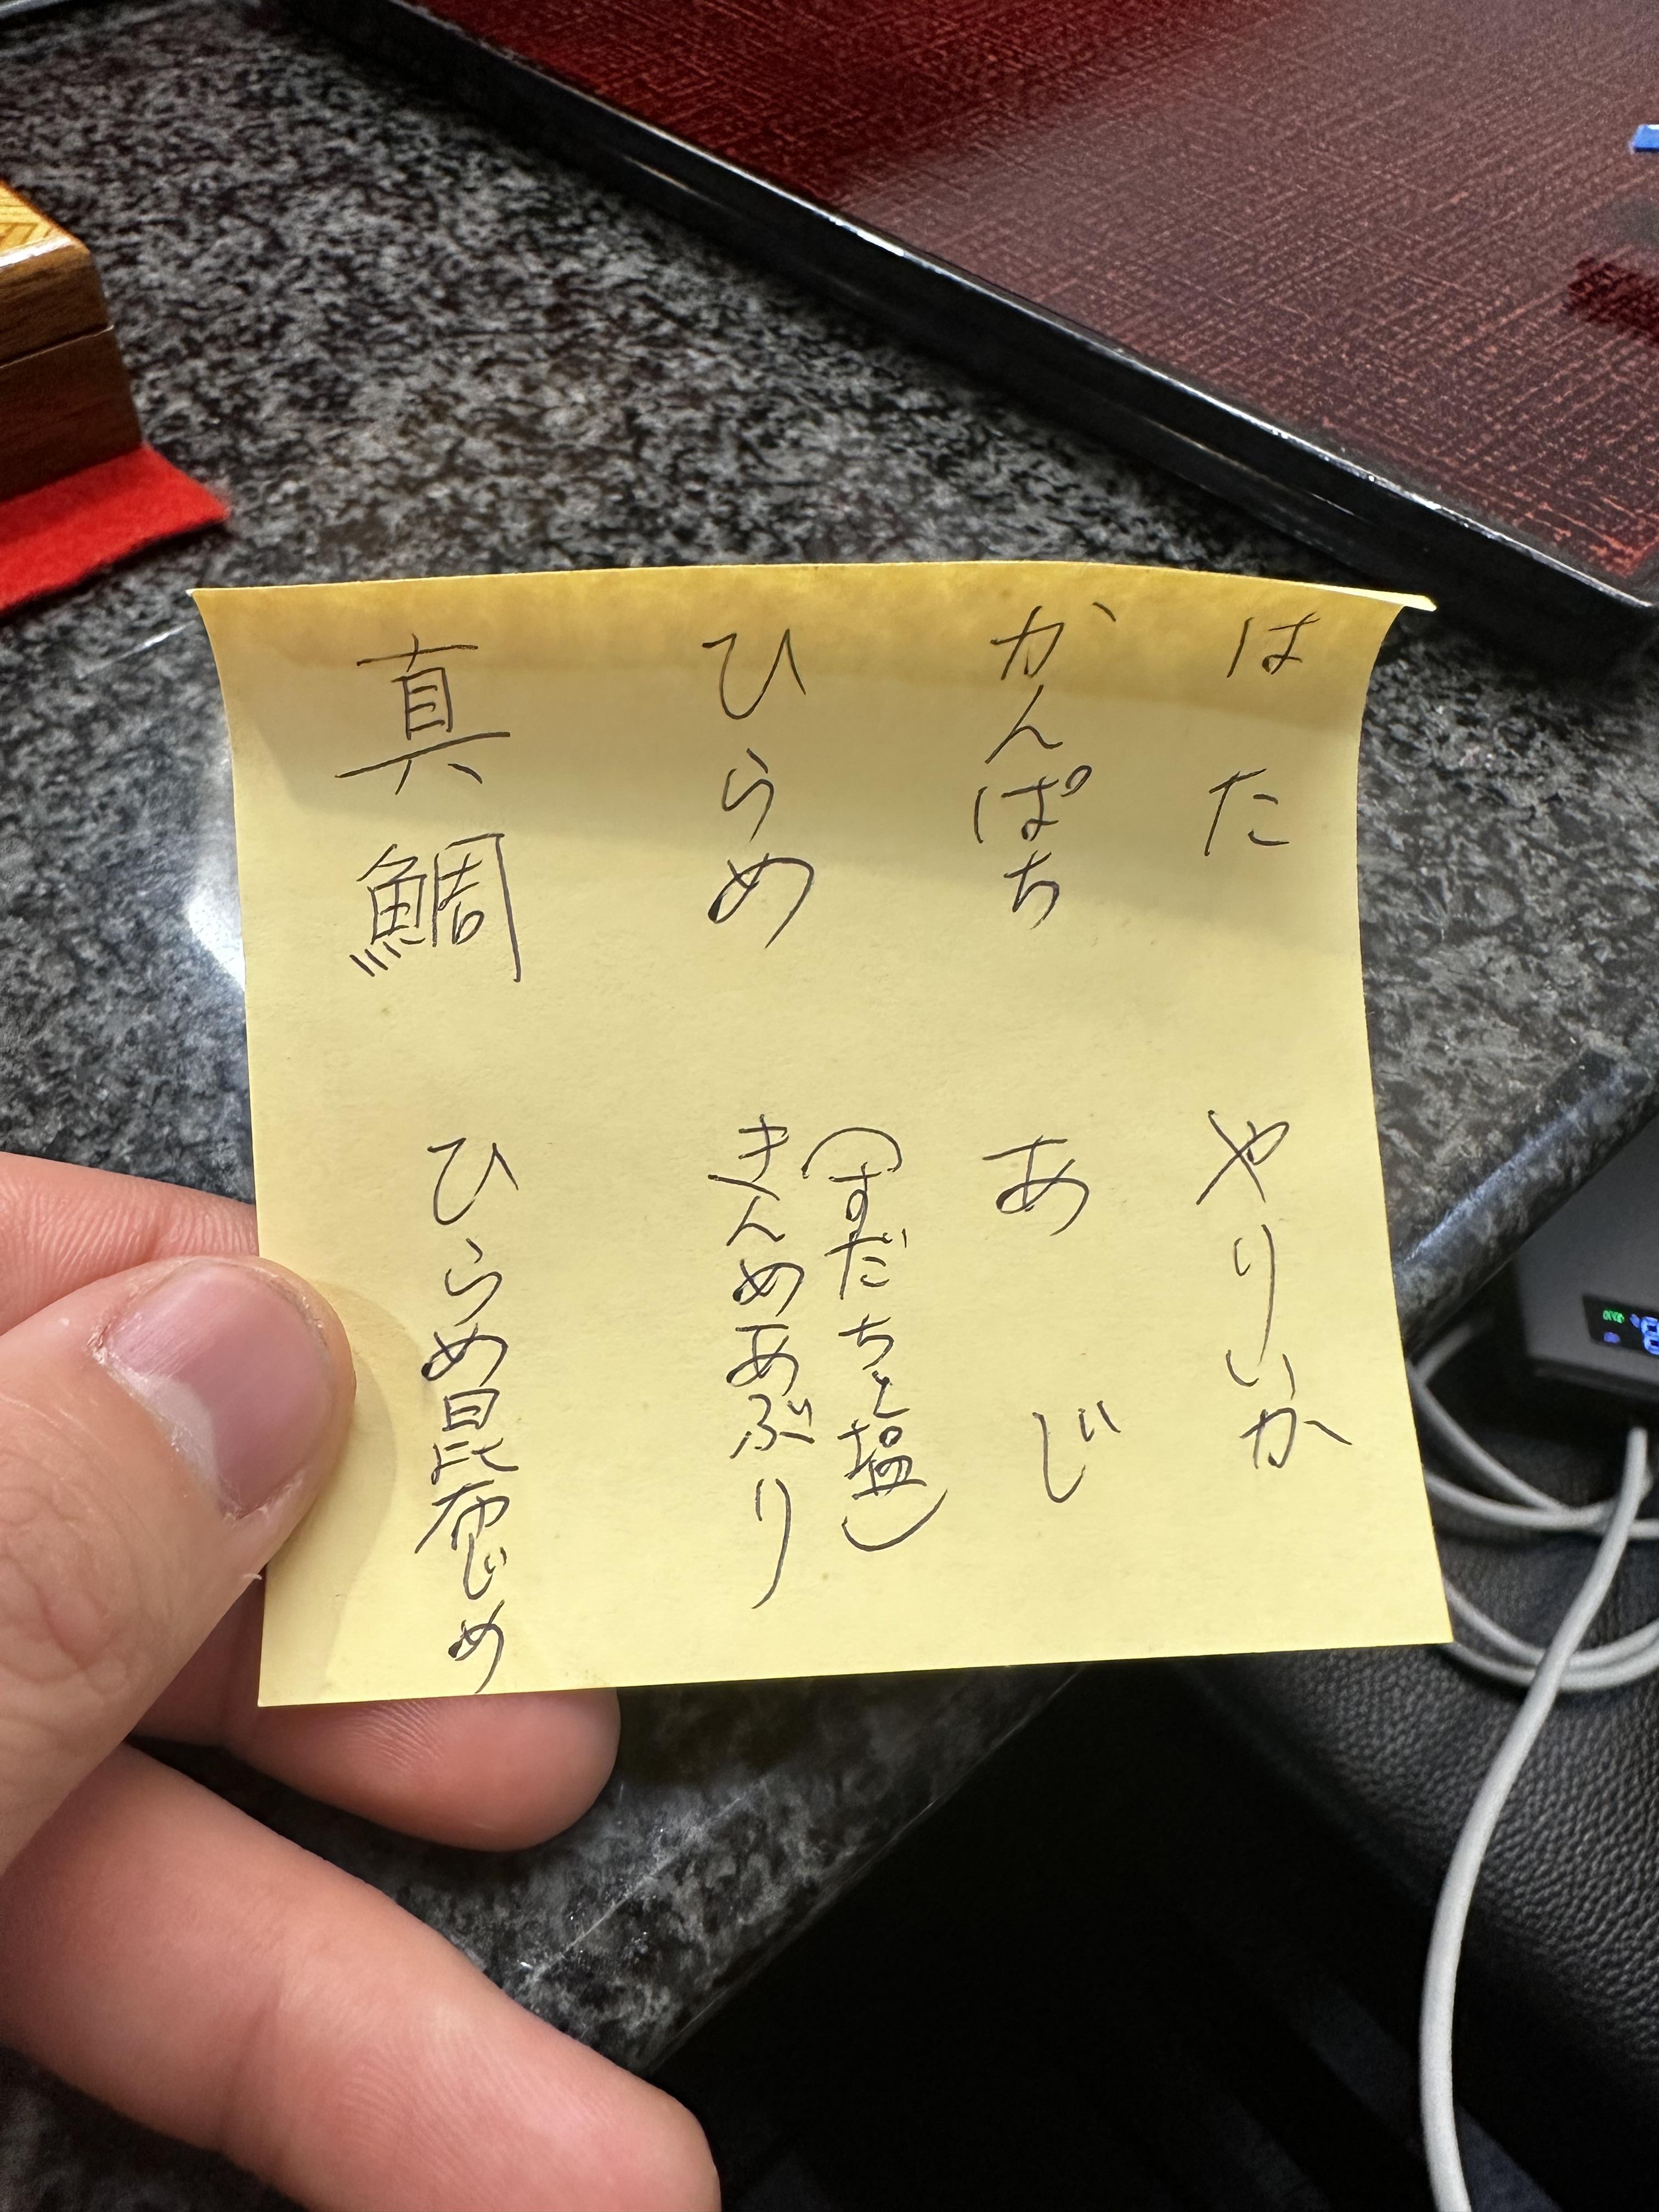 はた
かんぱち
ひらめ
真鯛
やりいか
あじ
(すだちと塩)
きんめあぶり
ひらめ昆布じめ